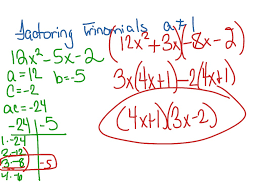 factoring trinomials a≠1
12x²-5x-2
a=12 b=-5
c=-2
ac=-24
-24 | -5
1·-24
2·-12
3·-8 | -5
4·-6
(12x²+3x)(-8x-2)
3x(4x+1)-2(4x+1)
(4x+1)(3x-2)